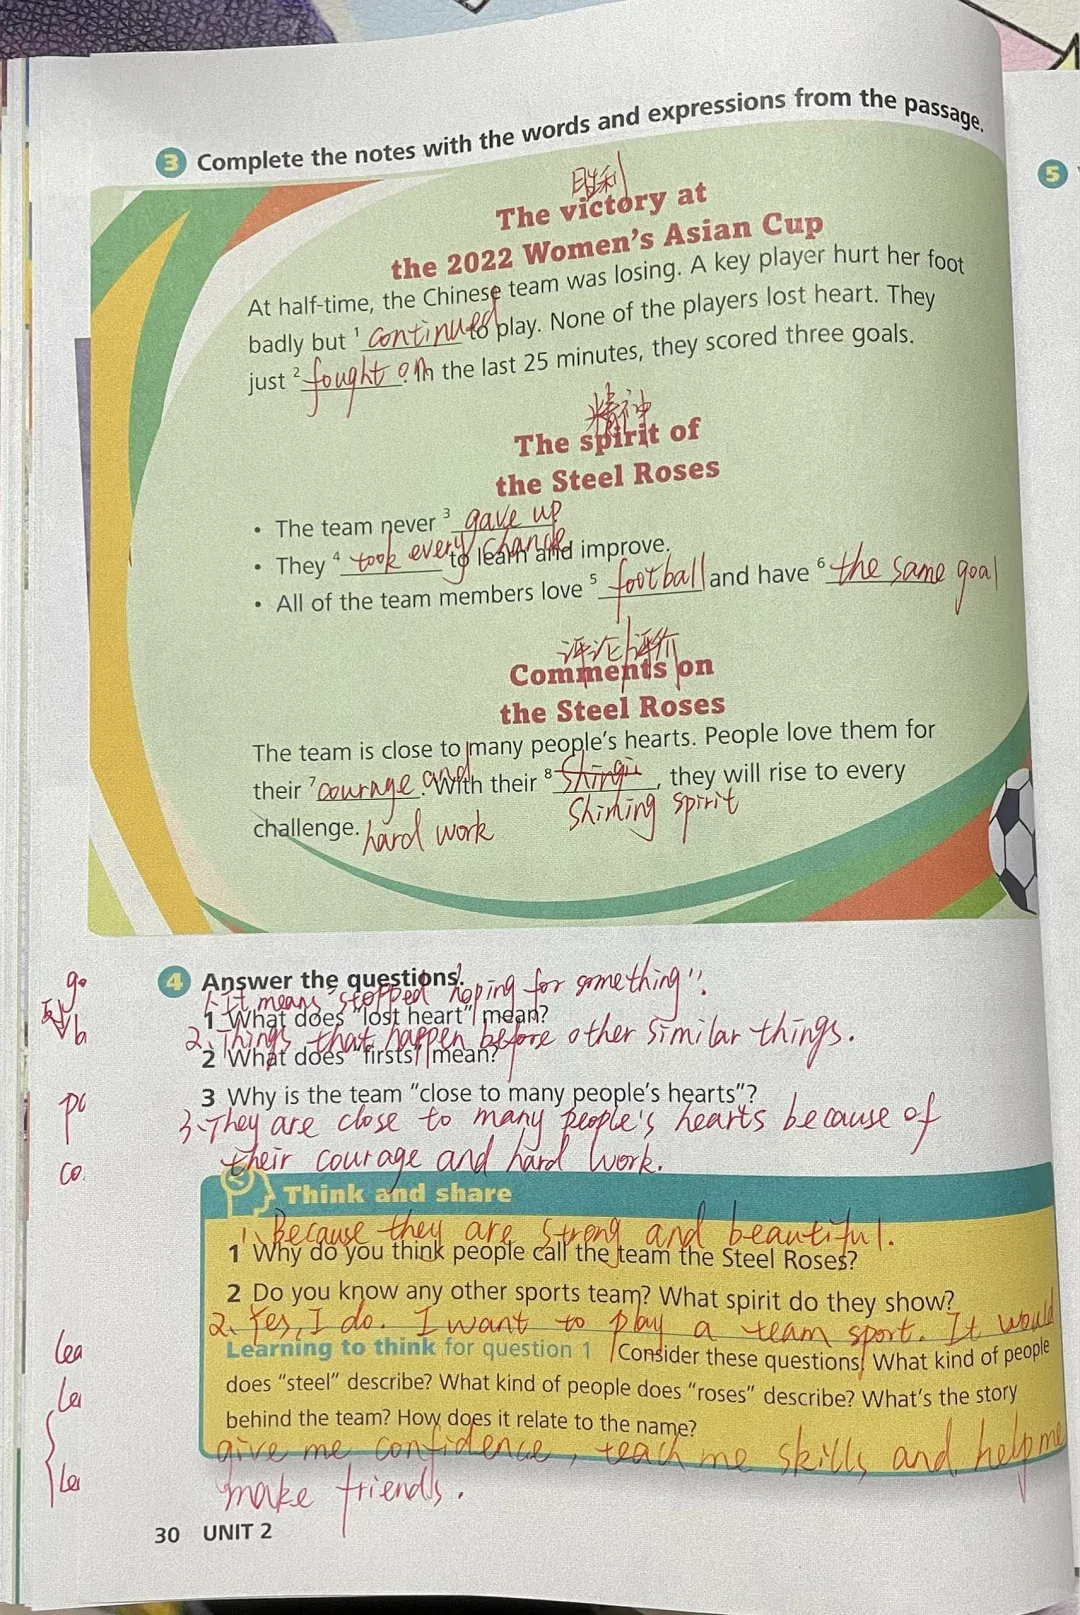 3 Complete the notes with the words and expressions from the passage.
胜利
The victory at
the 2022 Women's Asian Cup
At half-time, the Chinese team was losing. A key player hurt her foot
badly but 1 continued to play. None of the players lost heart. They
just 2 fought on. In the last 25 minutes, they scored three goals.
精神
The spirit of
the Steel Roses
• The team never 3 gave up.
• They 4 took every chance to learn and improve.
• All of the team members love 5 football and have 6 the same goal
评论 评价
Comments on
the Steel Roses
The team is close to many people's hearts. People love them for
their 7 courage and. With their 8 , they will rise to every
shining spirit
challenge. hard work
4 Answer the questions.
1. It means "stopped hoping for something".
1 What does "lost heart" mean?
2. Things that happen before other similar things.
2 What does "firsts" mean?
3 Why is the team "close to many people's hearts"?
3. They are close to many people's hearts because of
their courage and hard work.
Think and share
1. Because they are strong and beautiful.
1 Why do you think people call the team the Steel Roses?
2 Do you know any other sports team? What spirit do they show?
2. Yes, I do. I want to play a team sport. It would
Learning to think for question 1 Consider these questions: What kind of people
does "steel" describe? What kind of people does "roses" describe? What's the story
behind the team? How does it relate to the name?
give me confidence, teach me skills and help me
make friends.
30 UNIT 2
go
b
po
co
lea
le
le
5